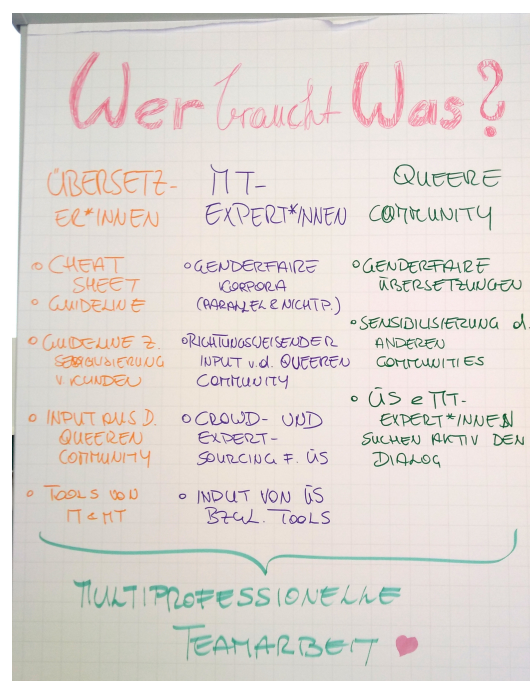 Wer braucht Was?
ÜBERSETZ-
ER*INNEN
CHEAT
SHEET
GUIDELINE
GUIDELINE Z.
SENSIBILISIERUNG
V. KUNDEN
INPUT AUS D.
QUEEREN
COMMUNITY
TOOLS VON
IT & MT
MT-
EXPERT*INNEN
GENDERFAIRE
KORPORA
(PARALLEL & NICHTP.)
RICHTUNGSWEISENDER
INPUT v.d. QUEEREN
COMMUNITY
CROWD- UND
EXPERT-
SOURCING F. ÜS
INPUT VON ÜS
BZGL. TOOLS
QUEERE
COMMUNITY
GENDERFAIRE
ÜBERSETZUNGEN
SENSIBILISIERUNG d.
ANDEREN
COMMUNITIES
ÜS & MT-
EXPERT*INNEN
SUCHEN AKTIV DEN
DIALOG
MULTIPROFESSIONELLE
TEAMARBEIT